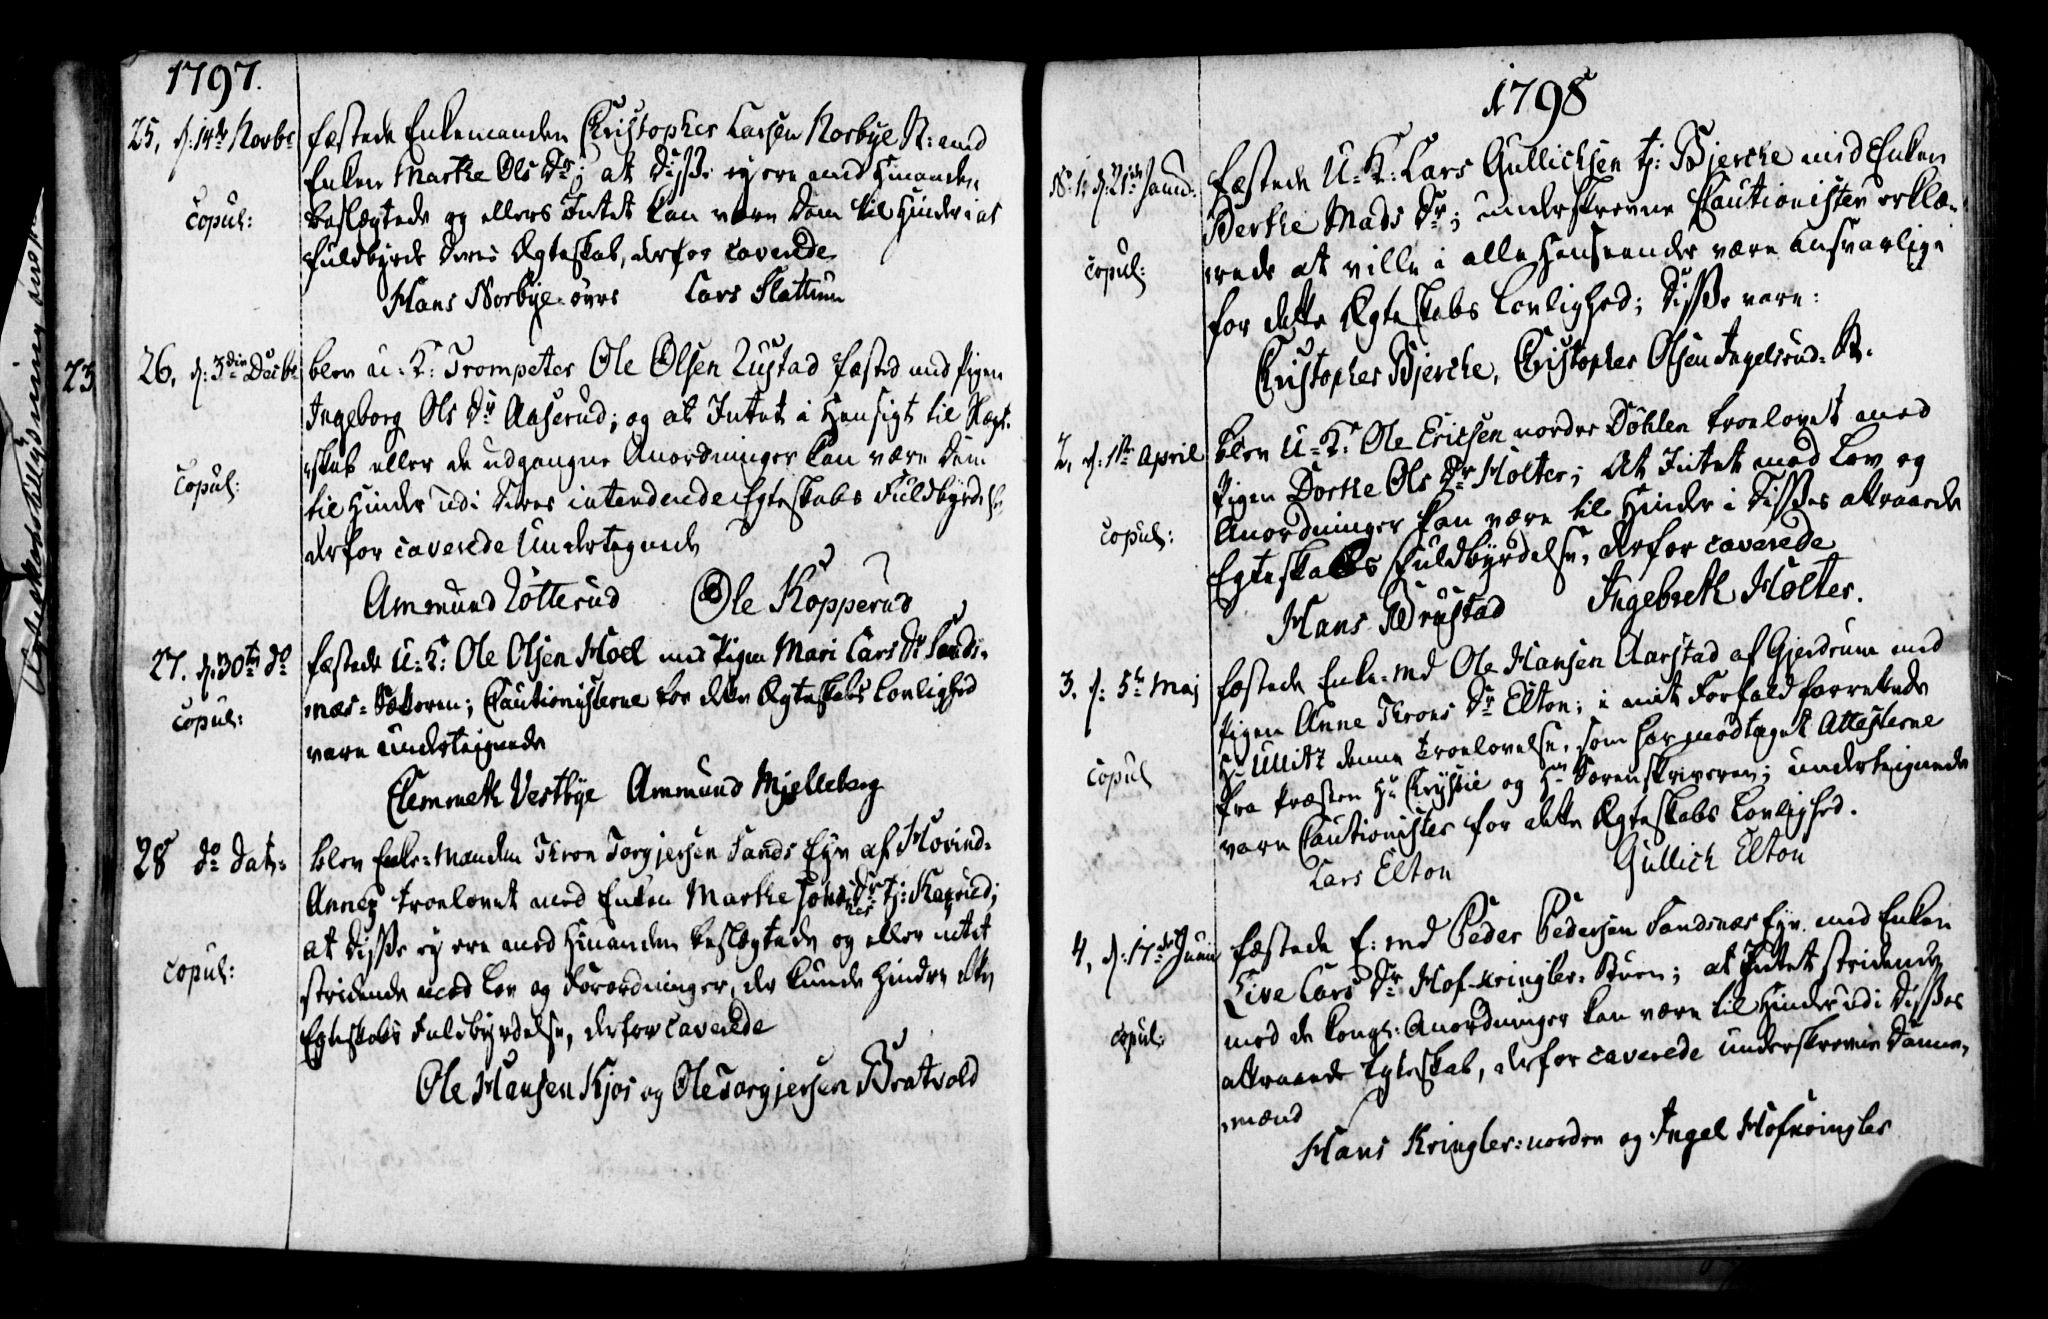 1797.
25, d: 14de Novbr fæstede Enkemanden Christopher Larsen Norbye N: med
Enken Marthe Ols Dr; at disse ey ere med hinanden
Copul: beslægtede og ellers Intet kan være dem til Hinder i at
fuldbyrde deres Ægteskab, derfor caverede
Hans Norbye øvre Lars Flattum
23
26, d: 3die Decbr blev U: K: Trompeter Ole Olsen Lustad fæsted med Pigen
Ingeborg Ols Dr Aaserud; og at Intet i Hensigt til Slægt-
Copul: skab eller de udgangne Anordninger kan være dem
til Hinder udi deres intenderede Egteskabs Fuldbyrdelse,
derfor caverede Undertegnede
Ammund Lötterud Ole Kopperud
27. d. 30te do fæstede U: K: Ole Olsen Moel med Pigen Mari Lars Dr Sands-
Copul: næs-Sætteren; Cautionisterne for dette Ægteskabs Lovlighed
vare underteignede
Clemmeth Vestbye Ammund Mjelleberg
28 do Dato: blev Enke-Manden Thron Torgjersen Sands Eyn af Hovind-
Annex troelovet med Enken Marthe Johannes Dr tj:
at disse ey ere med hinanden beslægtede og ellers intet
Copul: stridende mod Lov og Forordninger, der kunde hindre dette
Egteskabs Fuldbyrdelse, derfor caverede
Ole Hansen Kjos og Ole Torgjersen Bratvold
1798
No: 1: d: 21de Janu: fæstede U: K: Lars Gullichsen tj: Bjerche med Enken
Berthe Mads Dr; underskrevne Cautionister erklæ-
Copul: rede at ville i alle Henseender være ansvarlige
for dette Ægteskabs Lovlighed; disse vare:
Christopher Bjerche, Christopher Olsen Ingelsrud N.
2, d: 1te April blev U: K: Ole Ericsen nordre Döhlen troelovet med
Pigen Dorthe Ols Dr Holter; At Intet mod Lov og
Copul: Anordninger kan være til Hinder i Disses attraaede
Egteskabs Fuldbyrdelse, derfor caverede
Hans Brustad Ingebreth Holter.
3. d: 5te Maj fæstede Enke-Md Ole Hansen Aarstad af Gjerdrum med
Pigen Anne Throns Dr Elton; i mit Forfald forrettede
Hr Ullitz denne Troelovelse, som har modtaget Attesterne
Copul fra Præsten Hr Chrystie og Hr Sorenskriveren; underteignede
vare Cautionister for dette Ægteskabs Lovlighed.
Lars Elton Gullich Elton
4, d: 17de Junii fæstede E: Md Peder Pedersen Sandsnæs Eyn. med Enken
Live Lars Dr Hof-Kringler-Stuen; at Intet stridende
Copul: mod de kongl: Anordninger kan være til Hinder udi Disses
attraaede Egteskab, derfor caverede underskrevne Danne-
mænd
Hans Kringler: nordre og Ingel Hofkringler